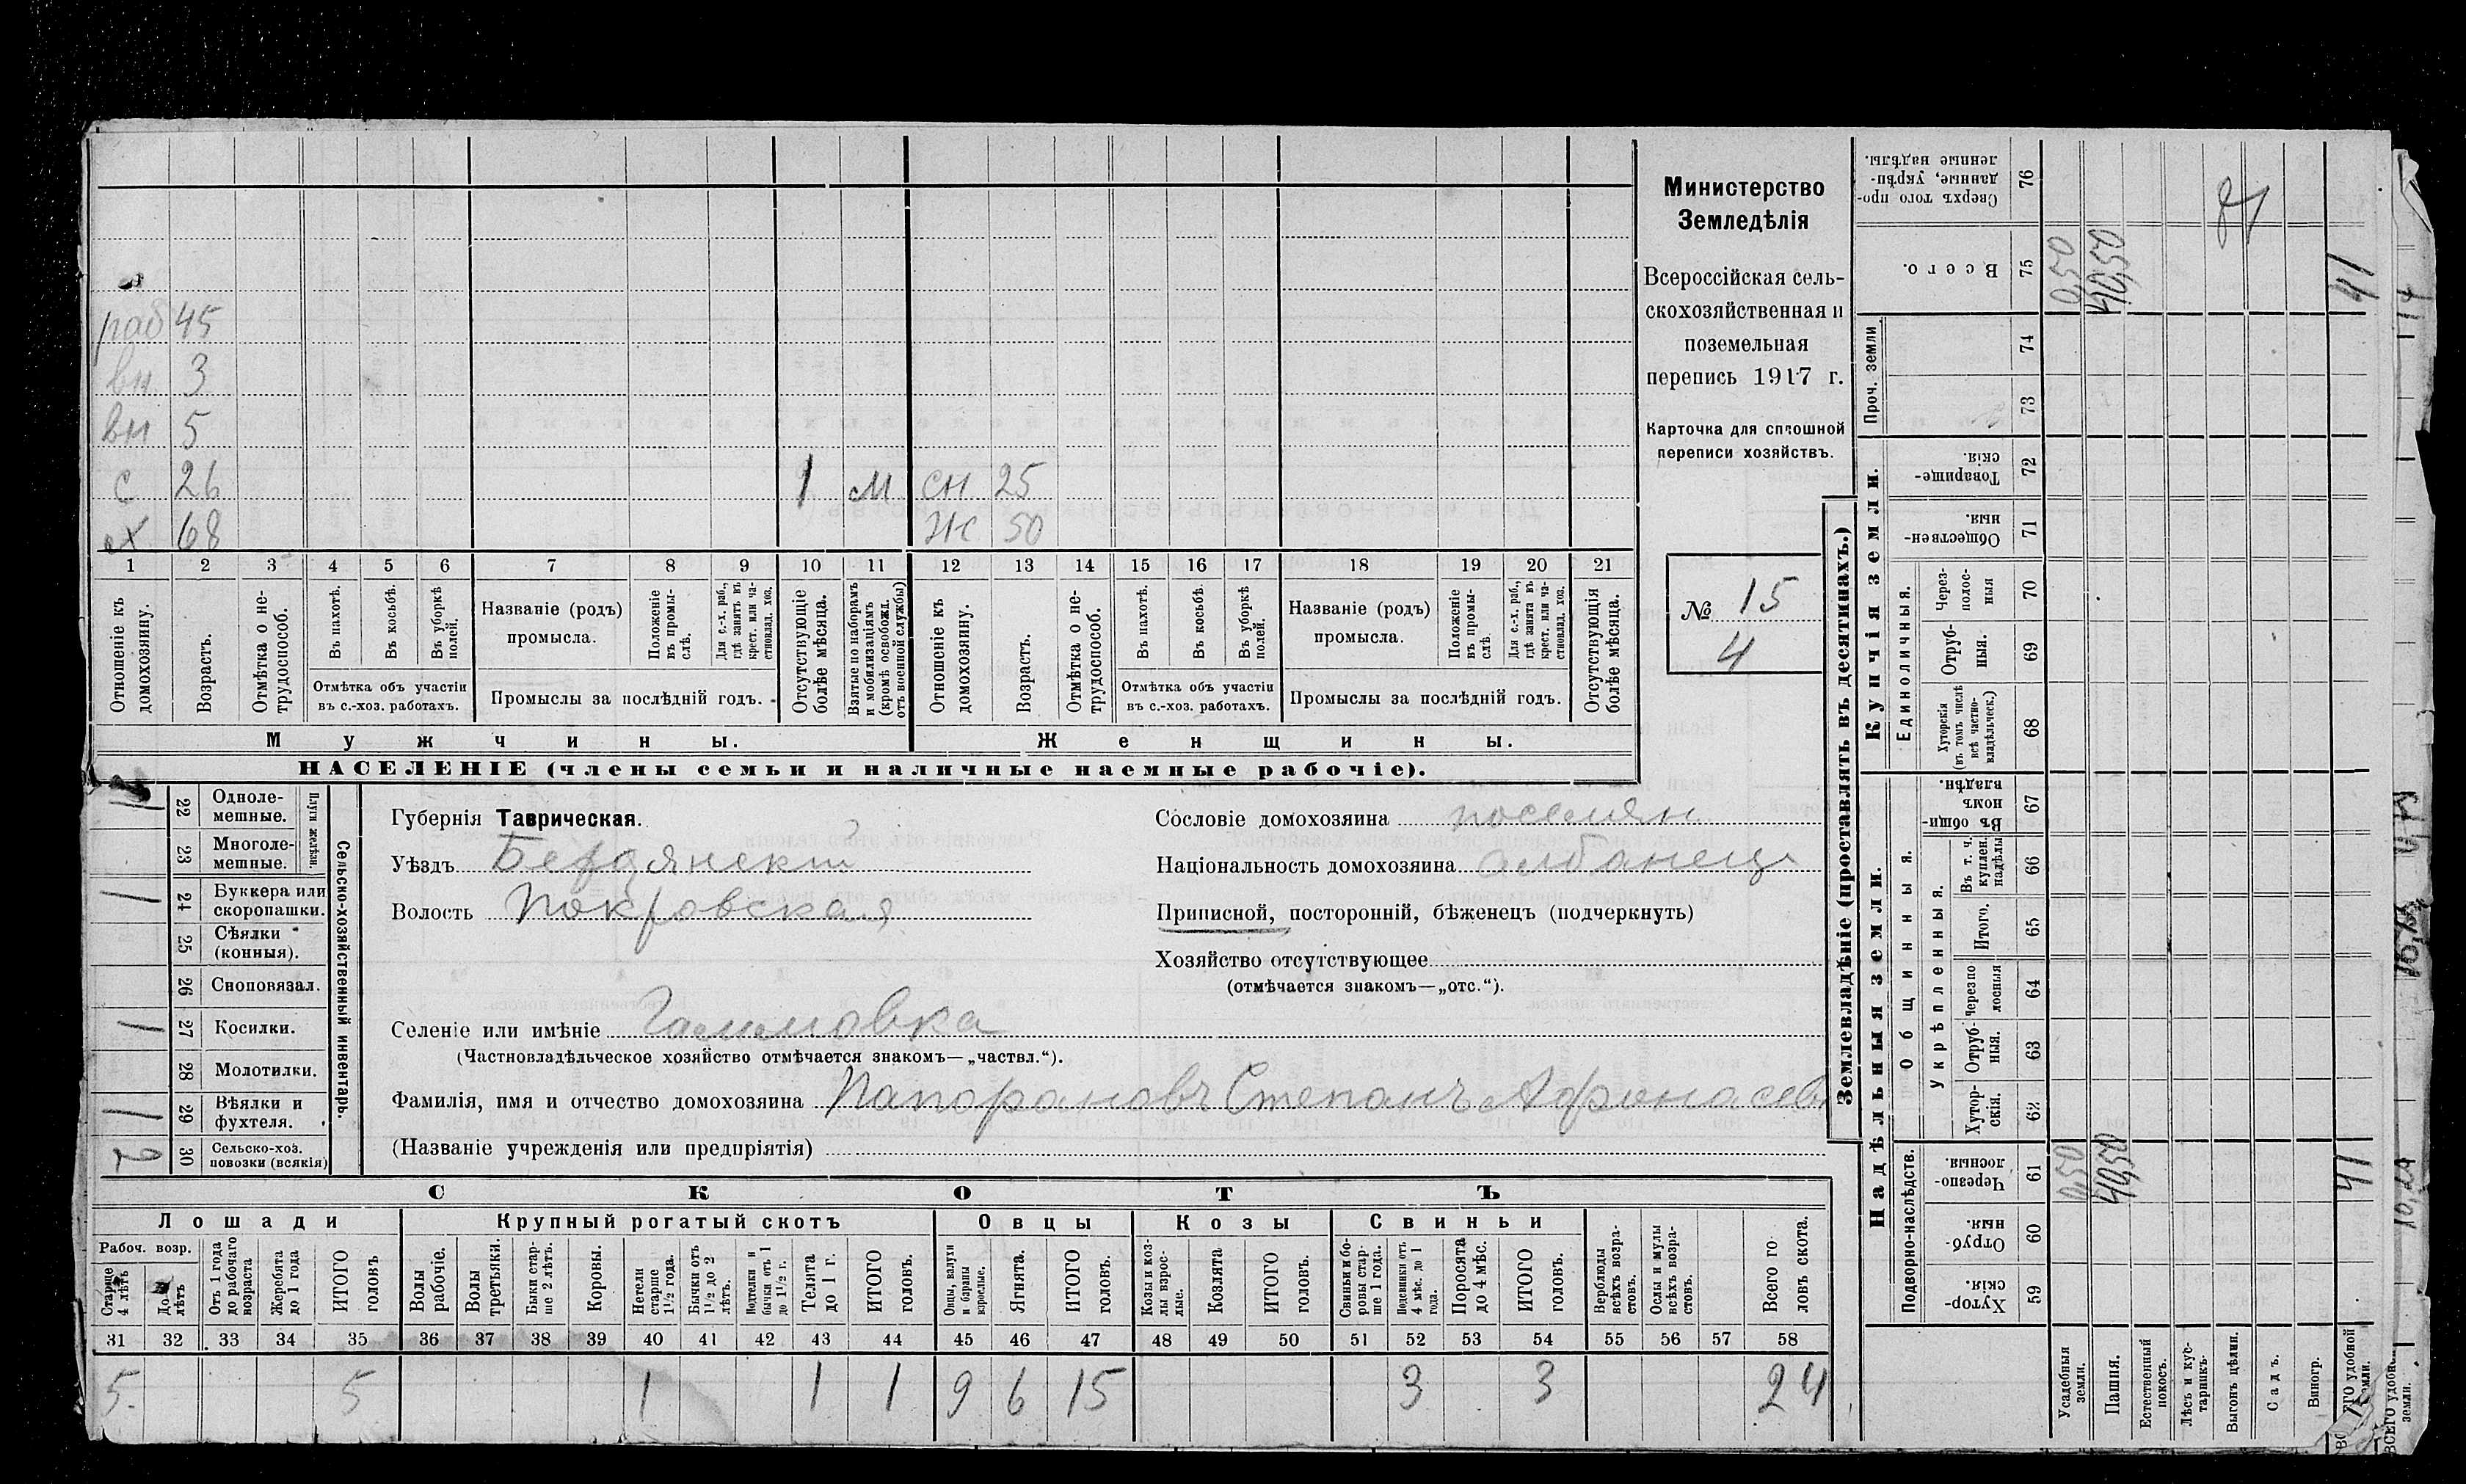 раб 45
вн. 3
вн 5
с 26 1 м сн 25
х 68 ж 50
1 2 3 4 5 6 7 8 9 10 11 12 13 14 15 16 17 18 19 20 21
Отношеніе къ домохозяину.
Возрастъ.
Отмѣтка о не-трудоспособ.
Въ пахотѣ.
Въ косьбѣ.
Въ уборкѣ полей.
Отмѣтка объ участіи
въ с.-хоз. работахъ.
Названіе (родъ)
промысла.
Положеніе въ промы-слѣ.
Для с.-х. раб., гдѣ занятъ въ крест. или ча-стновлад. хоз.
Промыслы за послѣдній годъ.
Отсутствующіе болѣе мѣсяца.
Взятые по наборамъ и мобилизаціямъ (кромѣ освобожд. отъ военной службы)
Отношеніе къ домохозяину.
Возрастъ.
Отмѣтка о не-трудоспособ.
Въ пахотѣ.
Въ косьбѣ.
Въ уборкѣ полей.
Отмѣтка объ участіи
въ с.-хоз. работахъ.
Названіе (родъ)
промысла.
Положеніе въ промы-слѣ
Для с.-х. раб., гдѣ занята въ крест. или ча-стновлад. хоз.
Промыслы за послѣдній годъ.
Отсутствующія болѣе мѣсяца.
Мужчины.
Женщины.
НАСЕЛЕНІЕ (члены семьи и наличные наемные рабочіе).
Министерство
Земледѣлія
Всероссійская сель-
скохозяйственная и
поземельная
перепись 1917 г.
Карточка для сплошной
переписи хозяйствъ.
№ 15
4
Сельско-хозяйственный инвентарь.
Плуги желѣзн.
1 22 Однолемешные.
23 Многолемешные.
1 24 Буккера или скоропашки.
25 Сѣялки (конныя).
26 Сноповязал.
1 27 Косилки.
28 Молотилки.
1 29 Вѣялки и фухтеля.
2 30 Сельско-хоз. повозки (всякія)
Губернія Таврическая.
Уѣздъ Бердянскій
Волость Покровская
Селеніе или имѣніе Гаммовка
(Частновладѣльческое хозяйство отмѣчается знакомъ—„частвл.“).
Фамилія, имя и отчество домохозяина Папорановъ Степанъ Афонасев
(Названіе учрежденія или предпріятія)
Сословіе домохозяина поселян
Національность домохозяина албанецъ
Приписной, посторонній, бѣженецъ (подчеркнуть)
Хозяйство отсутствующее
(отмѣчается знакомъ—„отс.“).
СКОТЪ
Лошади
Крупный рогатый скотъ
Овцы
Козы
Свиньи
Рабоч. возр.
Старше 4 лѣтъ
До 4 лѣтъ
Отъ 1 года до рабочаго возраста
Жеребята до 1 года
ИТОГО головъ
Волы рабочіе.
Волы третьяки.
Быки стар-ше 2 лѣтъ.
Коровы.
Нетели старше 1½ года.
Бычки отъ 1½ до 2 лѣтъ.
Подтелки и бычки отъ 1 до 1½ г.
Телята до 1 г.
ИТОГО головъ.
Овцы, валухи и бараны взрослые.
Ягнята.
ИТОГО головъ.
Козы и коз-лы взрос-лые.
Козлята
ИТОГО головъ.
Свиньи и бо-ровы стар-ше 1 года.
Подсвинки отъ 4 мѣс. до 1 года.
Поросята до 4 мѣс.
ИТОГО головъ.
Верблюды всѣхъ возра-стовъ.
Ослы и мулы всѣхъ возра-стовъ.
Всего го-ловъ скота.
31 32 33 34 35 36 37 38 39 40 41 42 43 44 45 46 47 48 49 50 51 52 53 54 55 56 57 58
5. 5 1 1 1 9 6 15 3 3 24
Землевладѣніе (проставлять въ десятинахъ.)
Надѣльныя земли.
Купчія земли.
Проч. земли
Подворно-наслѣдств.
Общинныя.
Укрѣпленныя.
Единоличныя.
Сверхъ того про-данные, укрѣп-ленные надѣлы. 76
Всего. 75 050 40,50 41
74
73
Товарище-скія. 72
Обществен-ныя. 71
Через-полос-ныя 70
Отруб-ныя. 69
Хуторскія (въ томъ числѣ всѣ частно-владѣльческ.) 68
Въ общи-номъ владѣн. 67
Въ т. ч. куплен. надѣлы 66
Итого. 65
Черезпо лосныя 64
Отруб-ныя. 63
Хутор-скія. 62
Черезпо-лосныя. 61 0,50 40,50 41
Отруб-ныя. 60
Хутор-скія. 59
Усадебныя земли.
Пашня.
Естественный покосъ.
Лѣсъ и кус-тарникъ.
Выгонъ цѣлин.
Садъ.
Виногр.